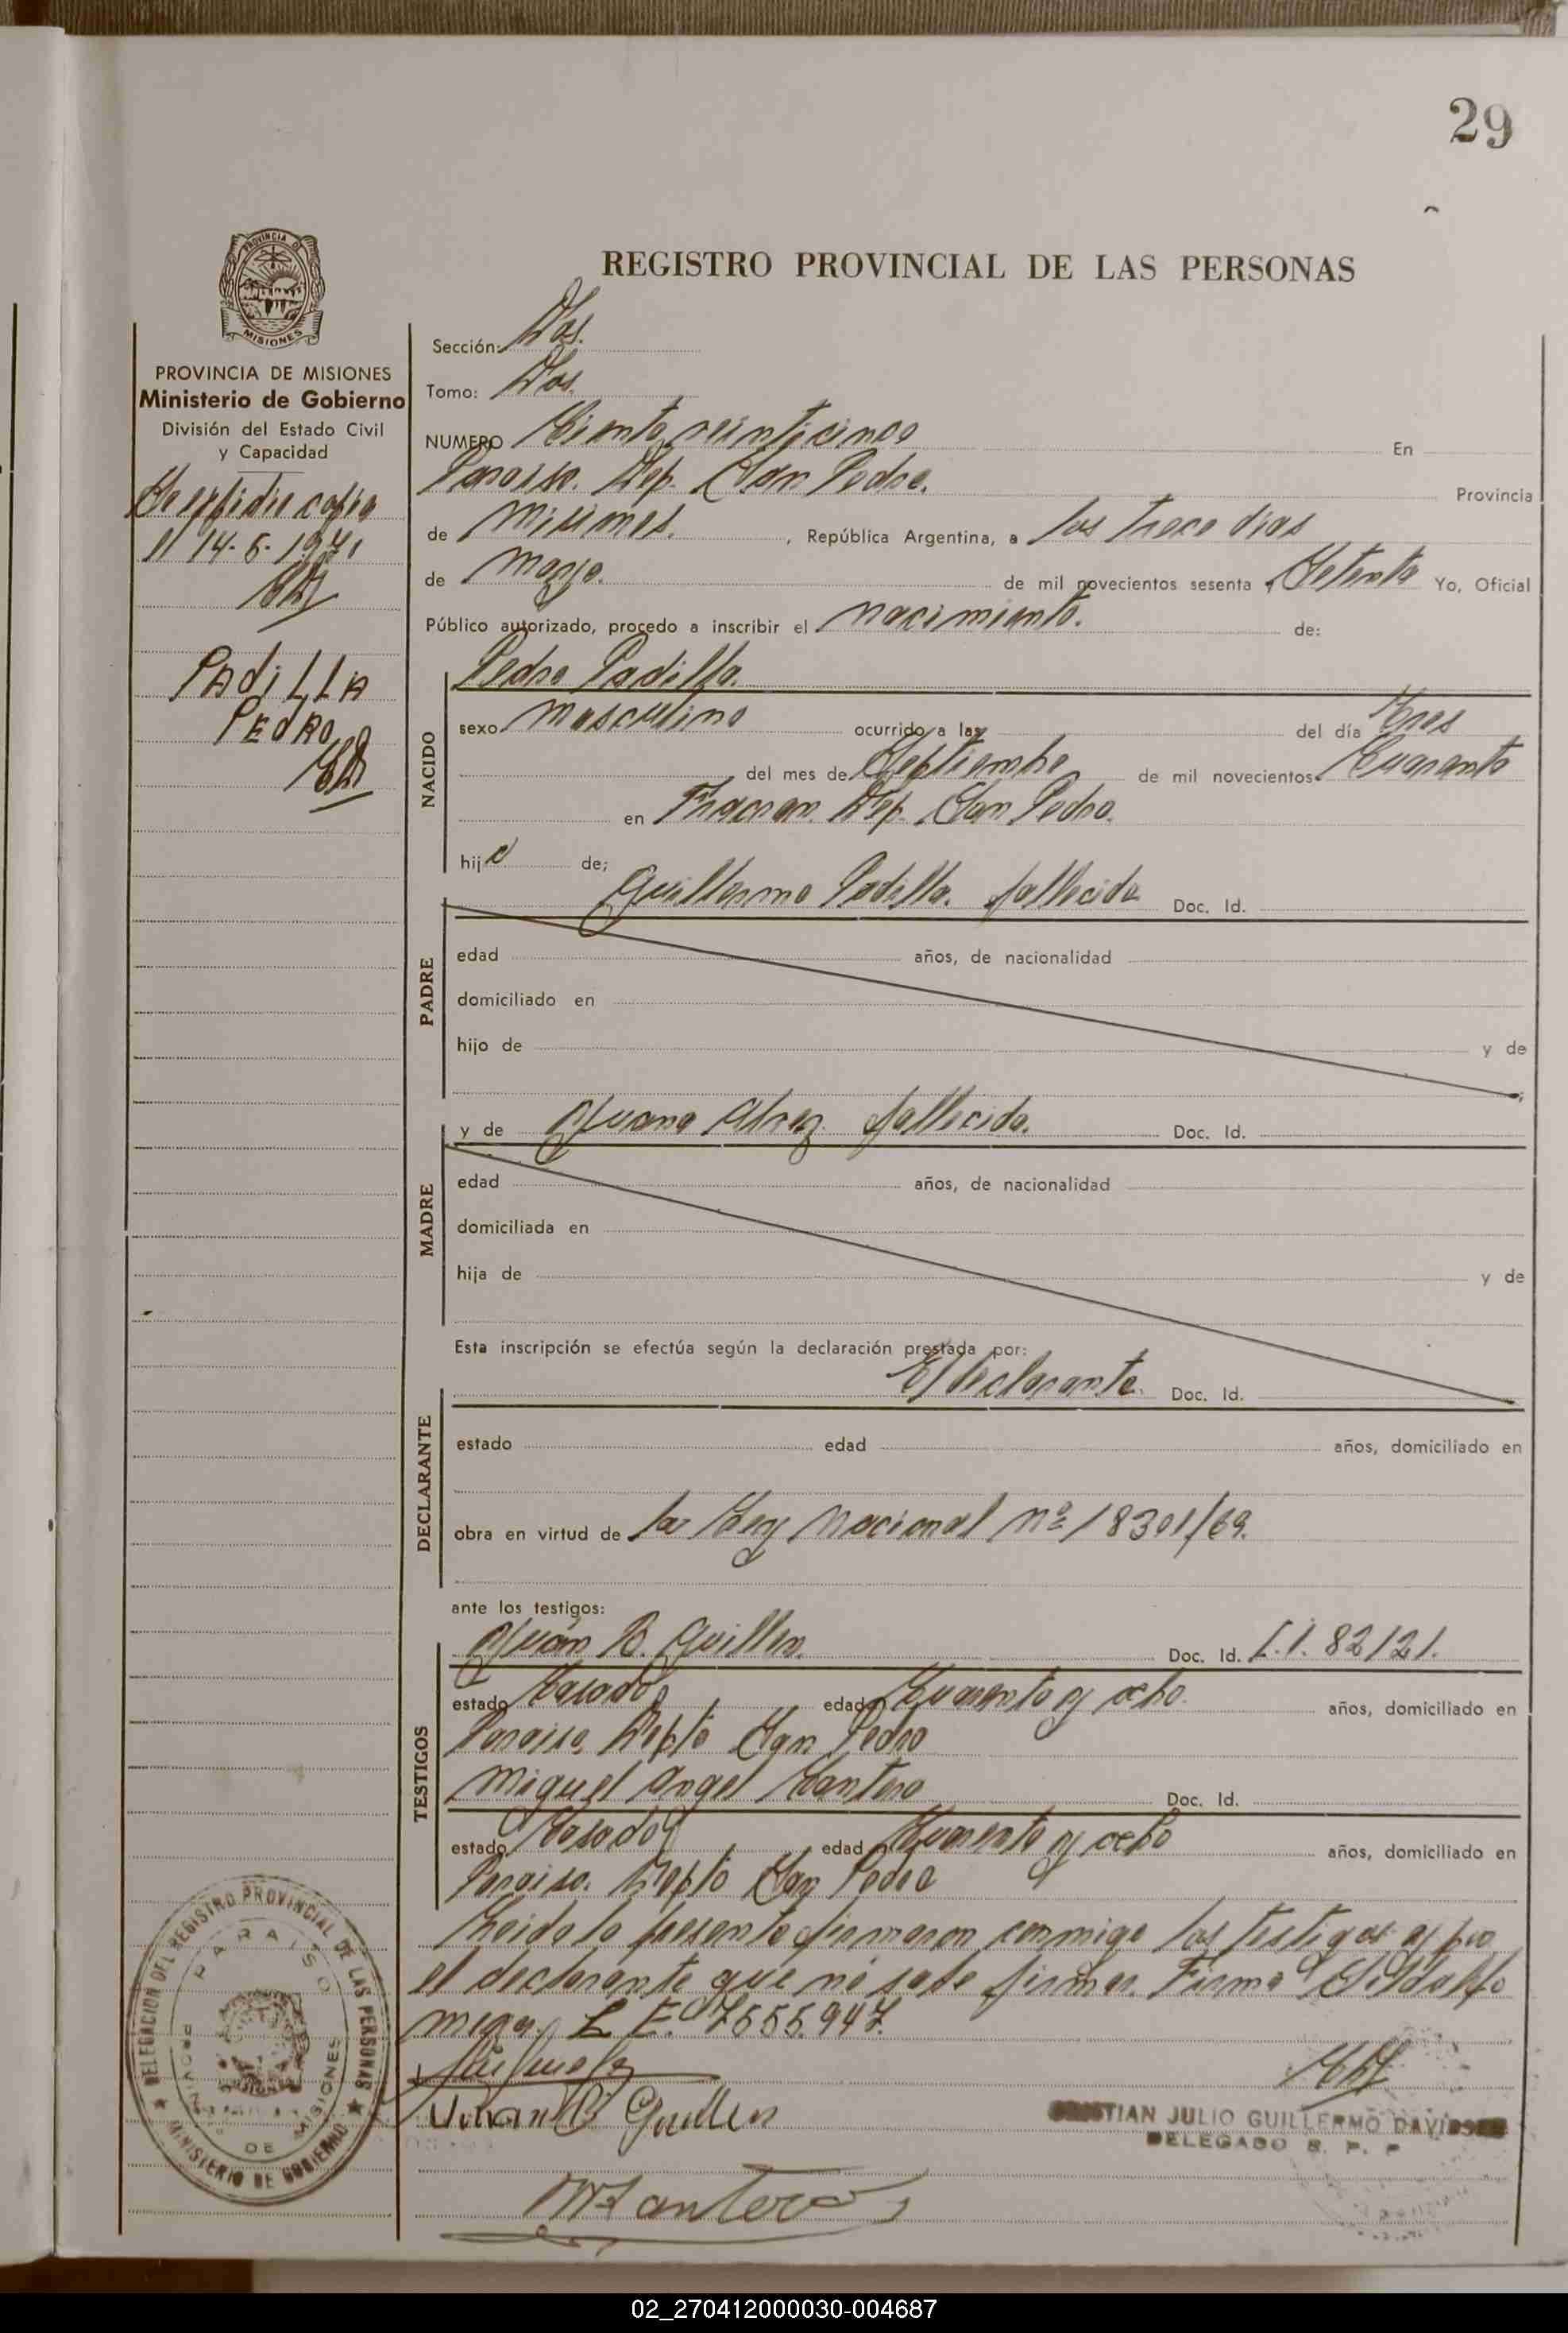 29
PROVINCIA DE
MISIONES
REGISTRO PROVINCIAL DE LAS PERSONAS
PROVINCIA DE MISIONES
Ministerio de Gobierno
División del Estado Civil
y Capacidad
copia
el 14-5-1971
PAdiLLA
PEdRO
Sección: Dos.
Tomo: Dos.
NUMERO Ciento veinticinco En
Paraiso. Dep. San Pedro. Provincia
de Misiones. , República Argentina, a los trece dias
de Marzo. de mil novecientos sesenta y Setenta Yo, Oficial
Público autorizado, procedo a inscribir el nacimiento. de:
NACIDO
Pedro Padilla.
sexo Masculino ocurrido a las del día Tres
del mes de Septiembre de mil novecientos Cuarenta
en Fracran. Dep. San Pedro.
hijo de;
PADRE
Guillermo Padilla. fallecido Doc. Id.
edad años, de nacionalidad
domiciliado en
hijo de y de
MADRE
y de Juana Alvez fallecida. Doc. Id.
edad años, de nacionalidad
domiciliada en
hija de y de
Esta inscripción se efectúa según la declaración prestada por:
DECLARANTE
El declarante. Doc. Id.
estado edad años, domiciliado en
obra en virtud de la Ley Nacional nº 18301/69.
ante los testigos:
TESTIGOS
Juán B. Guillen. Doc. Id. C.I. 82121.
estado Casado edad Cuarenta y ocho. años, domiciliado en
Paraiso Depto San Pedro
Miguel Angel Cantero Doc. Id.
estado Casado edad Cuarenta y ocho años, domiciliado en
Paraiso. Depto San Pedro
Leida la presente firmaron conmigo los testigos y por
el declarante que nó sabe firmar. Firma
L E. 7555.947.
Juan B Guillen
M A Cantero
CRISTIAN JULIO GUILLERMO DAVIDSEN
DELEGADO R. P. P
DELEGACION DEL REGISTRO PROVINCIAL DE LAS PERSONAS
MINISTERIO DE GOBIERNO
PARAISO
PROVINCIA
DE MISIONES
02_270412000030-004687